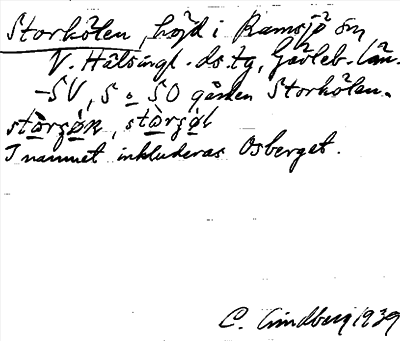 Storkölen, höjd i Ramsjö sn
V. Hälsingl. ds. tg, Gävleb. län.
-SV, S o SO gården Storkölen.
I namnet inkluderas Osberget.
C. Lindberg 1939